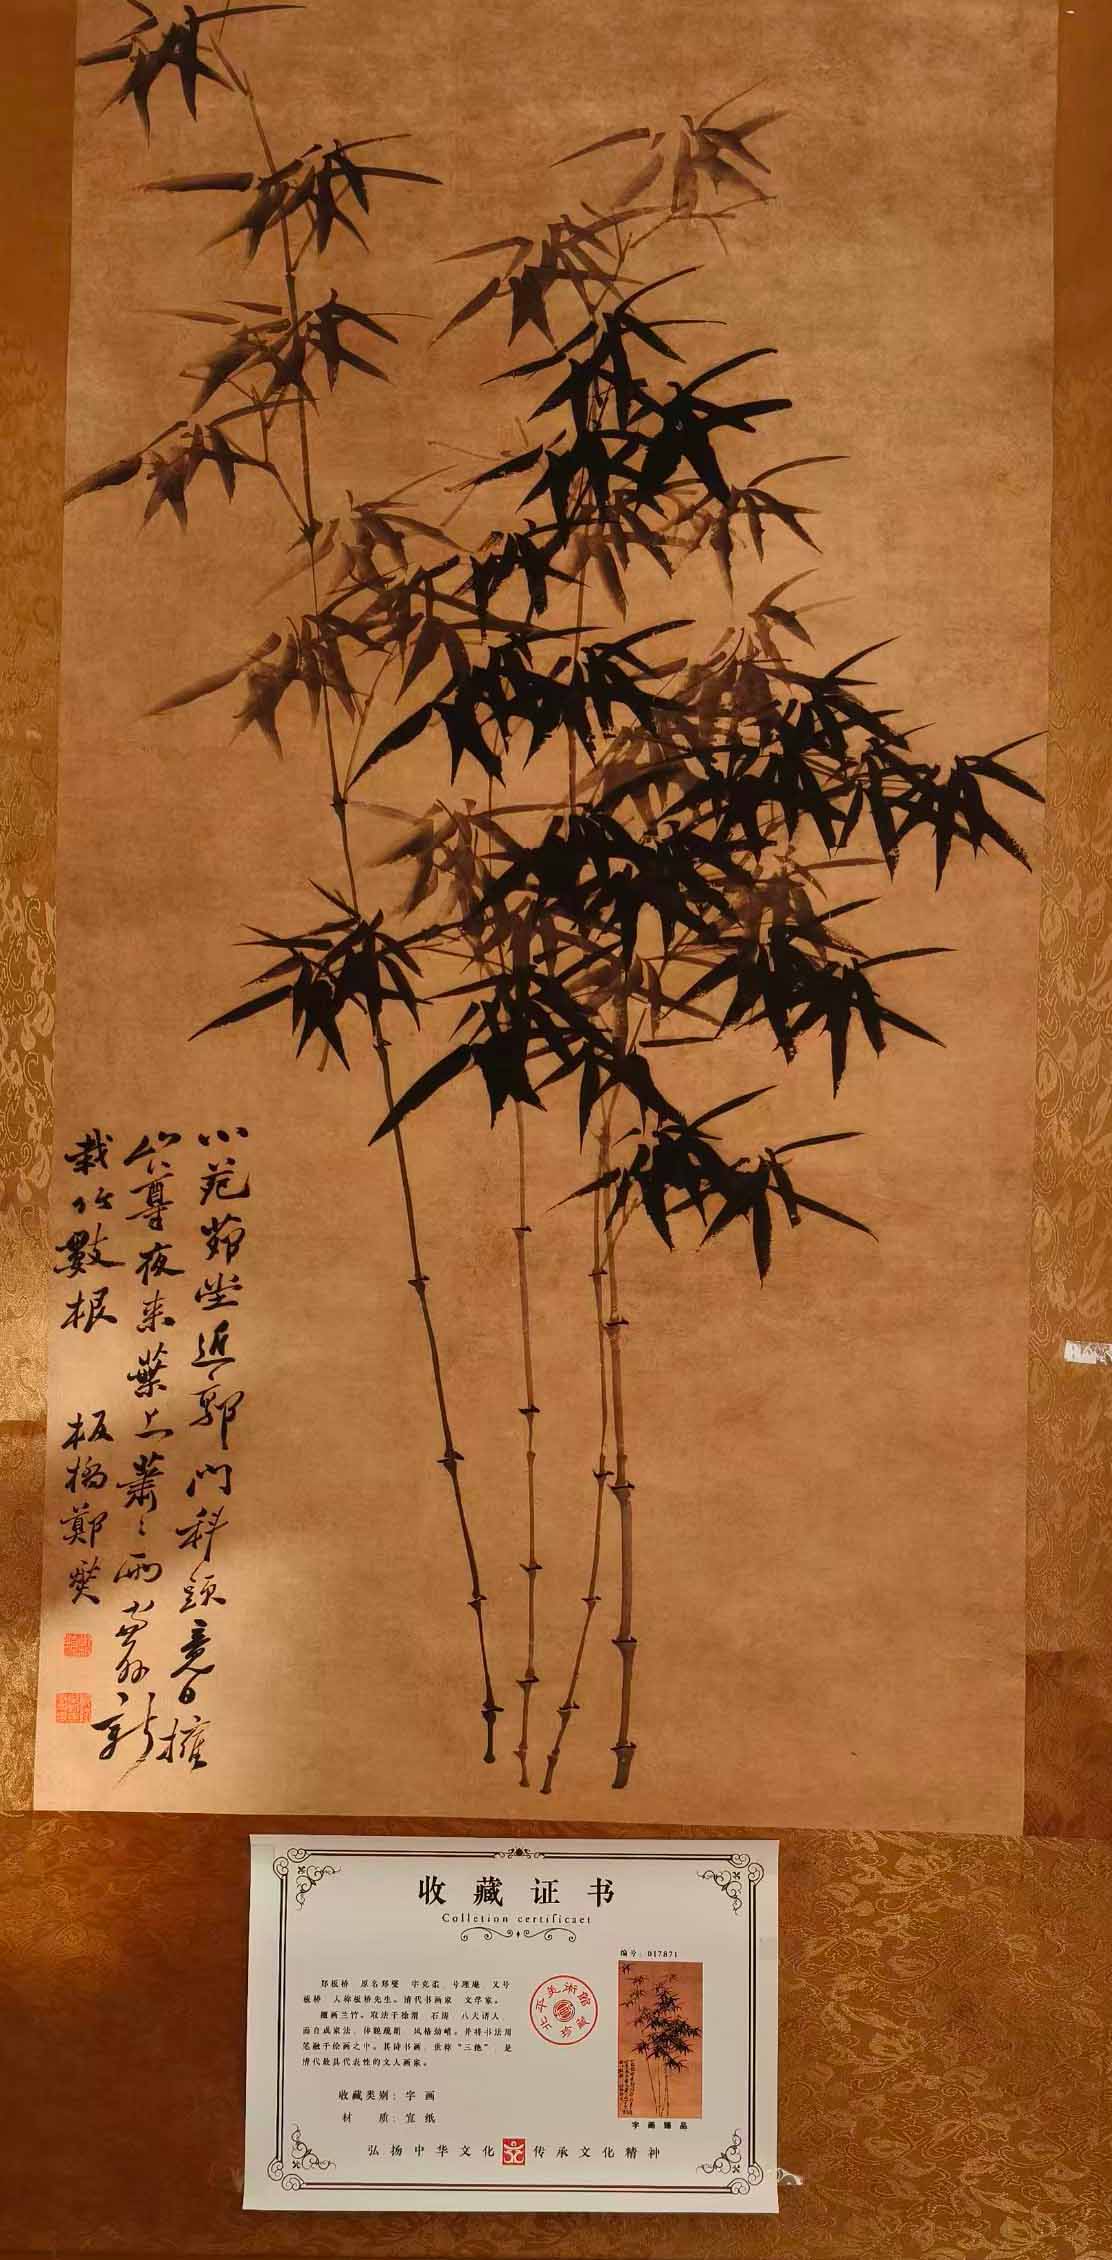 小苑茆堂近郭门科頭竟日擁
山尊夜来葉上蕭〻雨窗外新
栽竹數根
板橋鄭燮
收藏证书
Colletion certificaet
编号：017871
郑板桥 原名郑燮 字克柔，号理庵 又号
板桥 人称板桥先生。清代书画家 文学家。
擅画兰竹。取法于徐渭 石涛 八大诸人，
而自成家法，体貌疏朗，风格劲峭。并将书法用
笔融于绘画之中。其诗书画，世称“三绝”，是
清代最具代表性的文人画家。
北平美術館
珍藏
字画臻品
收藏类别：字 画
材 质：宣 纸
弘扬中华文化 传承文化精神